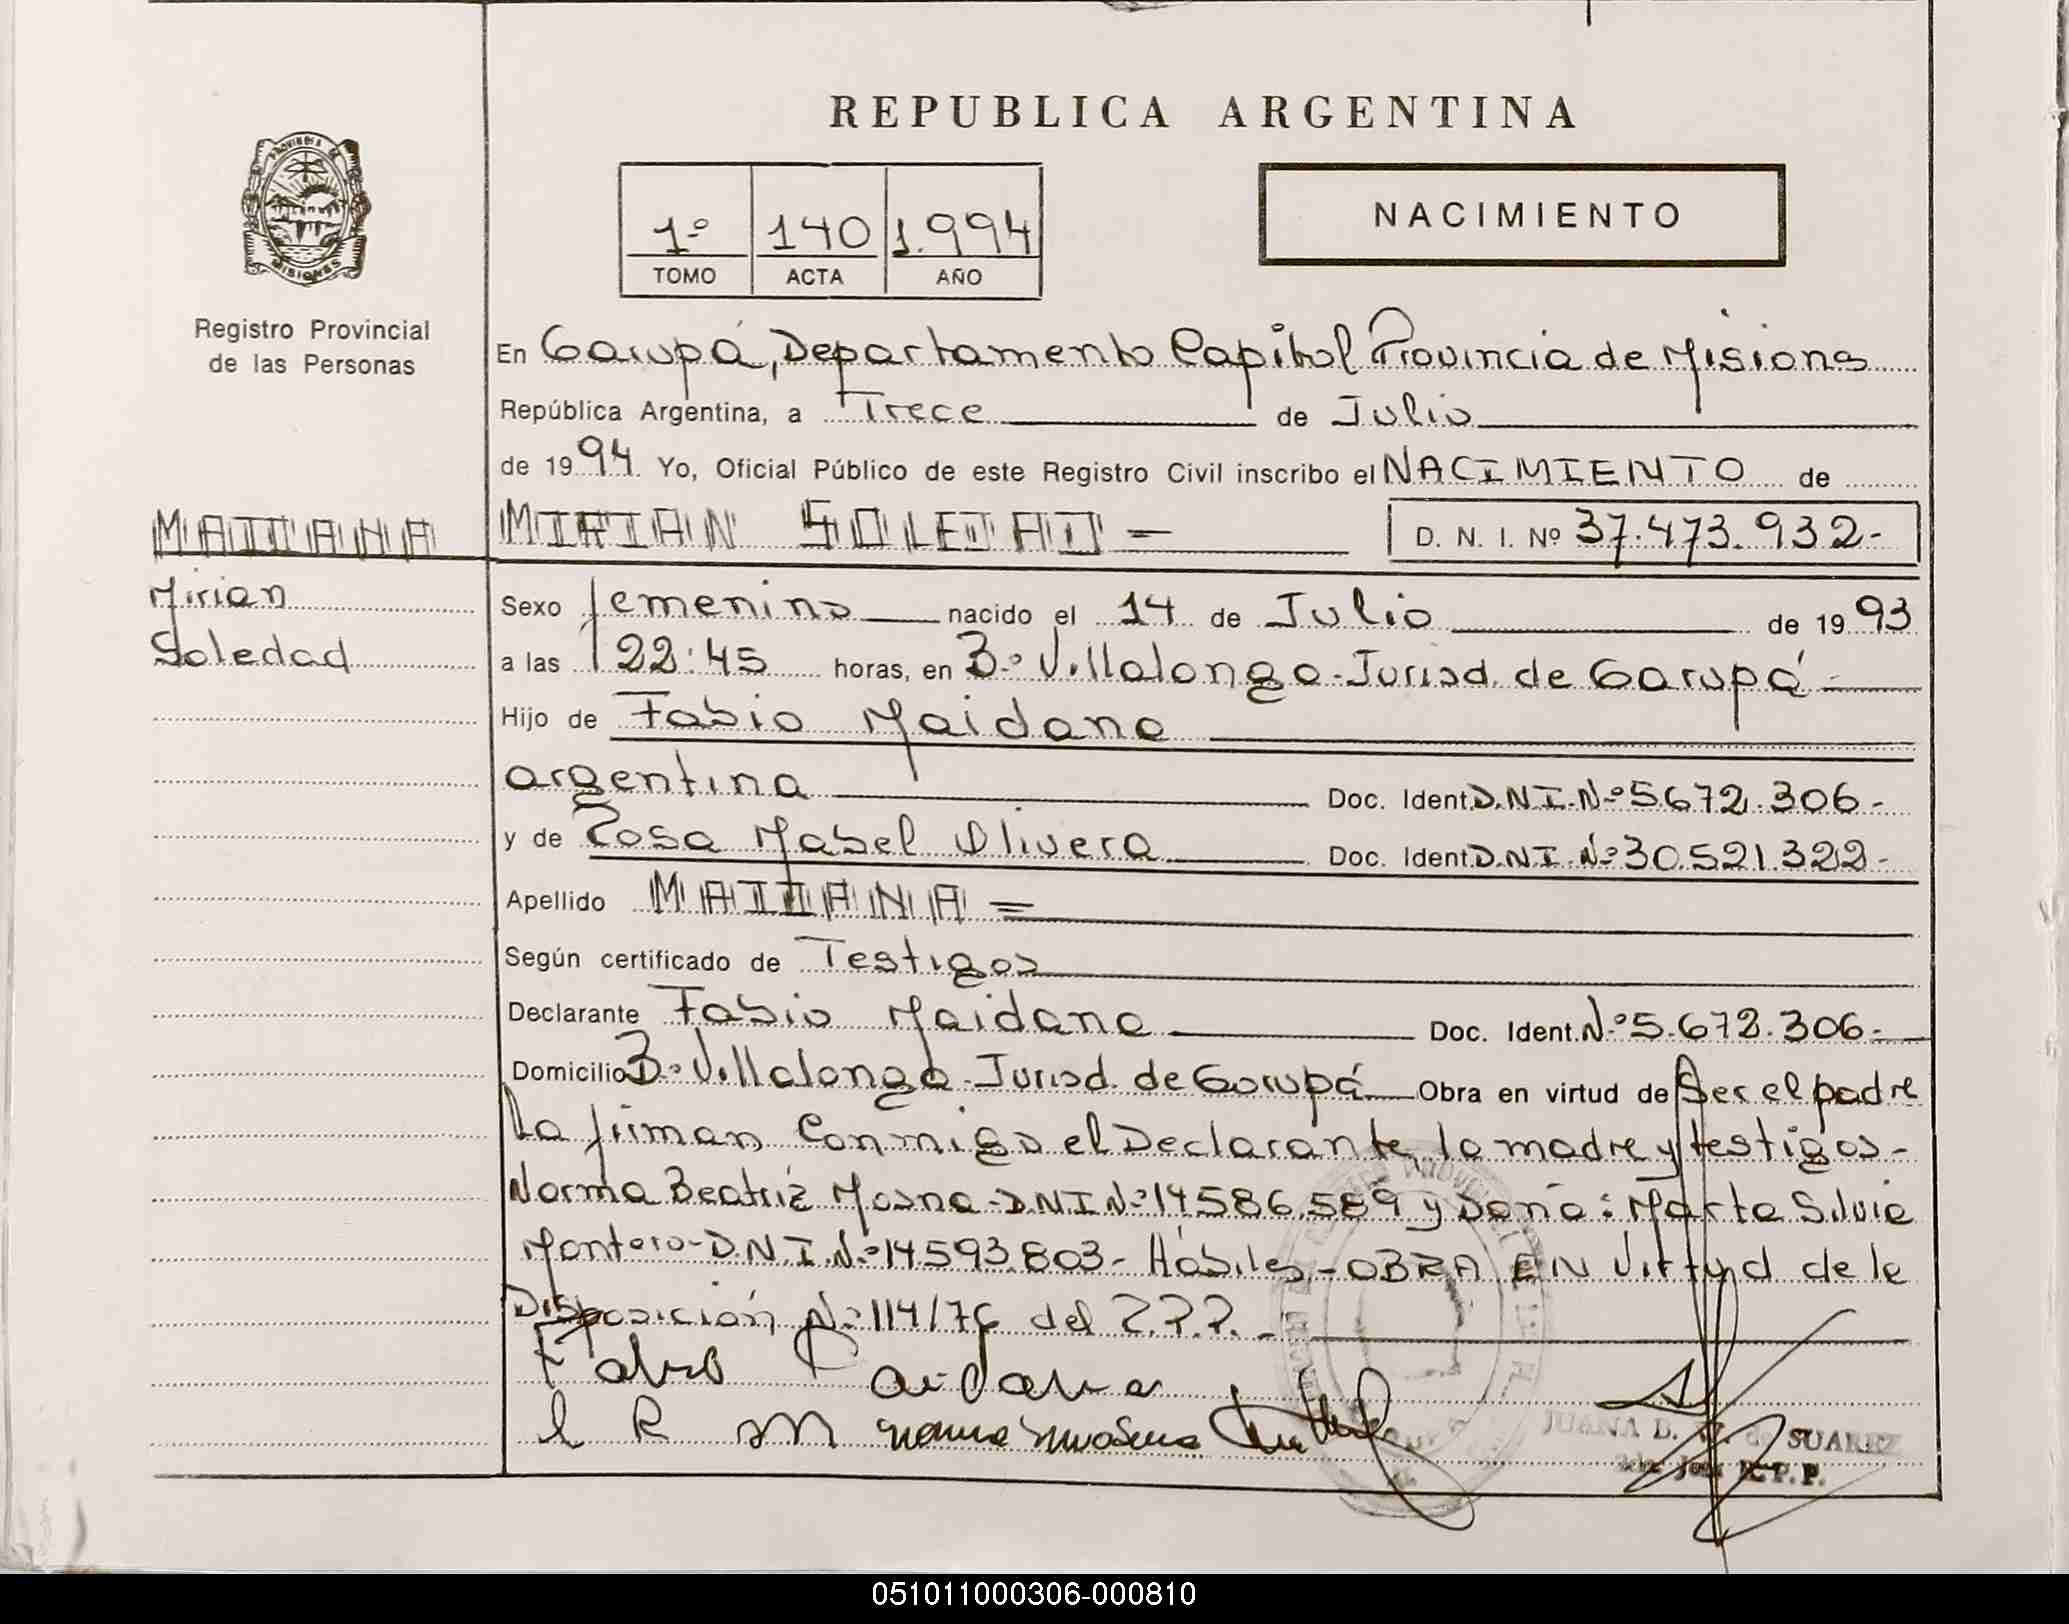 REPUBLICA ARGENTINA
PROVINCIA DE
MISIONES
Registro Provincial
de las Personas
1º 140 1.994
TOMO ACTA AÑO
NACIMIENTO
En Garupá, Departamento Capital Provincia de Misiones
República Argentina, a Trece de Julio
de 1994. Yo, Oficial Público de este Registro Civil inscribo el NACIMIENTO de
MAIDANA
MIRIAN SOLEDAD - D. N. I. Nº 37.473.932-
Mirian
Soledad
Sexo femenino nacido el 14 de Julio de 1993
a las 22:45 horas, en Bº Villalonga-Jurisd. de Garupá-
Hijo de Fabio Maidana
argentina Doc. Ident. D.N.I. Nº 5.672.306-
y de Rosa Mabel Olivera Doc. Ident. D.N.I. Nº 30.521.322-
Apellido MAIDANA =
Según certificado de Testigos
Declarante Fabio Maidana Doc. Ident. Nº 5.672.306-
Domicilio Bº Villalonga-Jurisd. de Garupá Obra en virtud de Ser el padre
La firman Conmigo el Declarante, la madre y testigos-
Norma Beatriz Mosna-DNI Nº 14.586.589 y Doña: Marta Silvia
Montero-D.N.I. Nº 14.593.803- Hábiles-OBRA EN Virtud de la
Disposición Nº 114/76 del R.P.P. -
Fabio Maidana
R M
JUANA D. de SUAREZ
R.P.P.
051011000306-000810